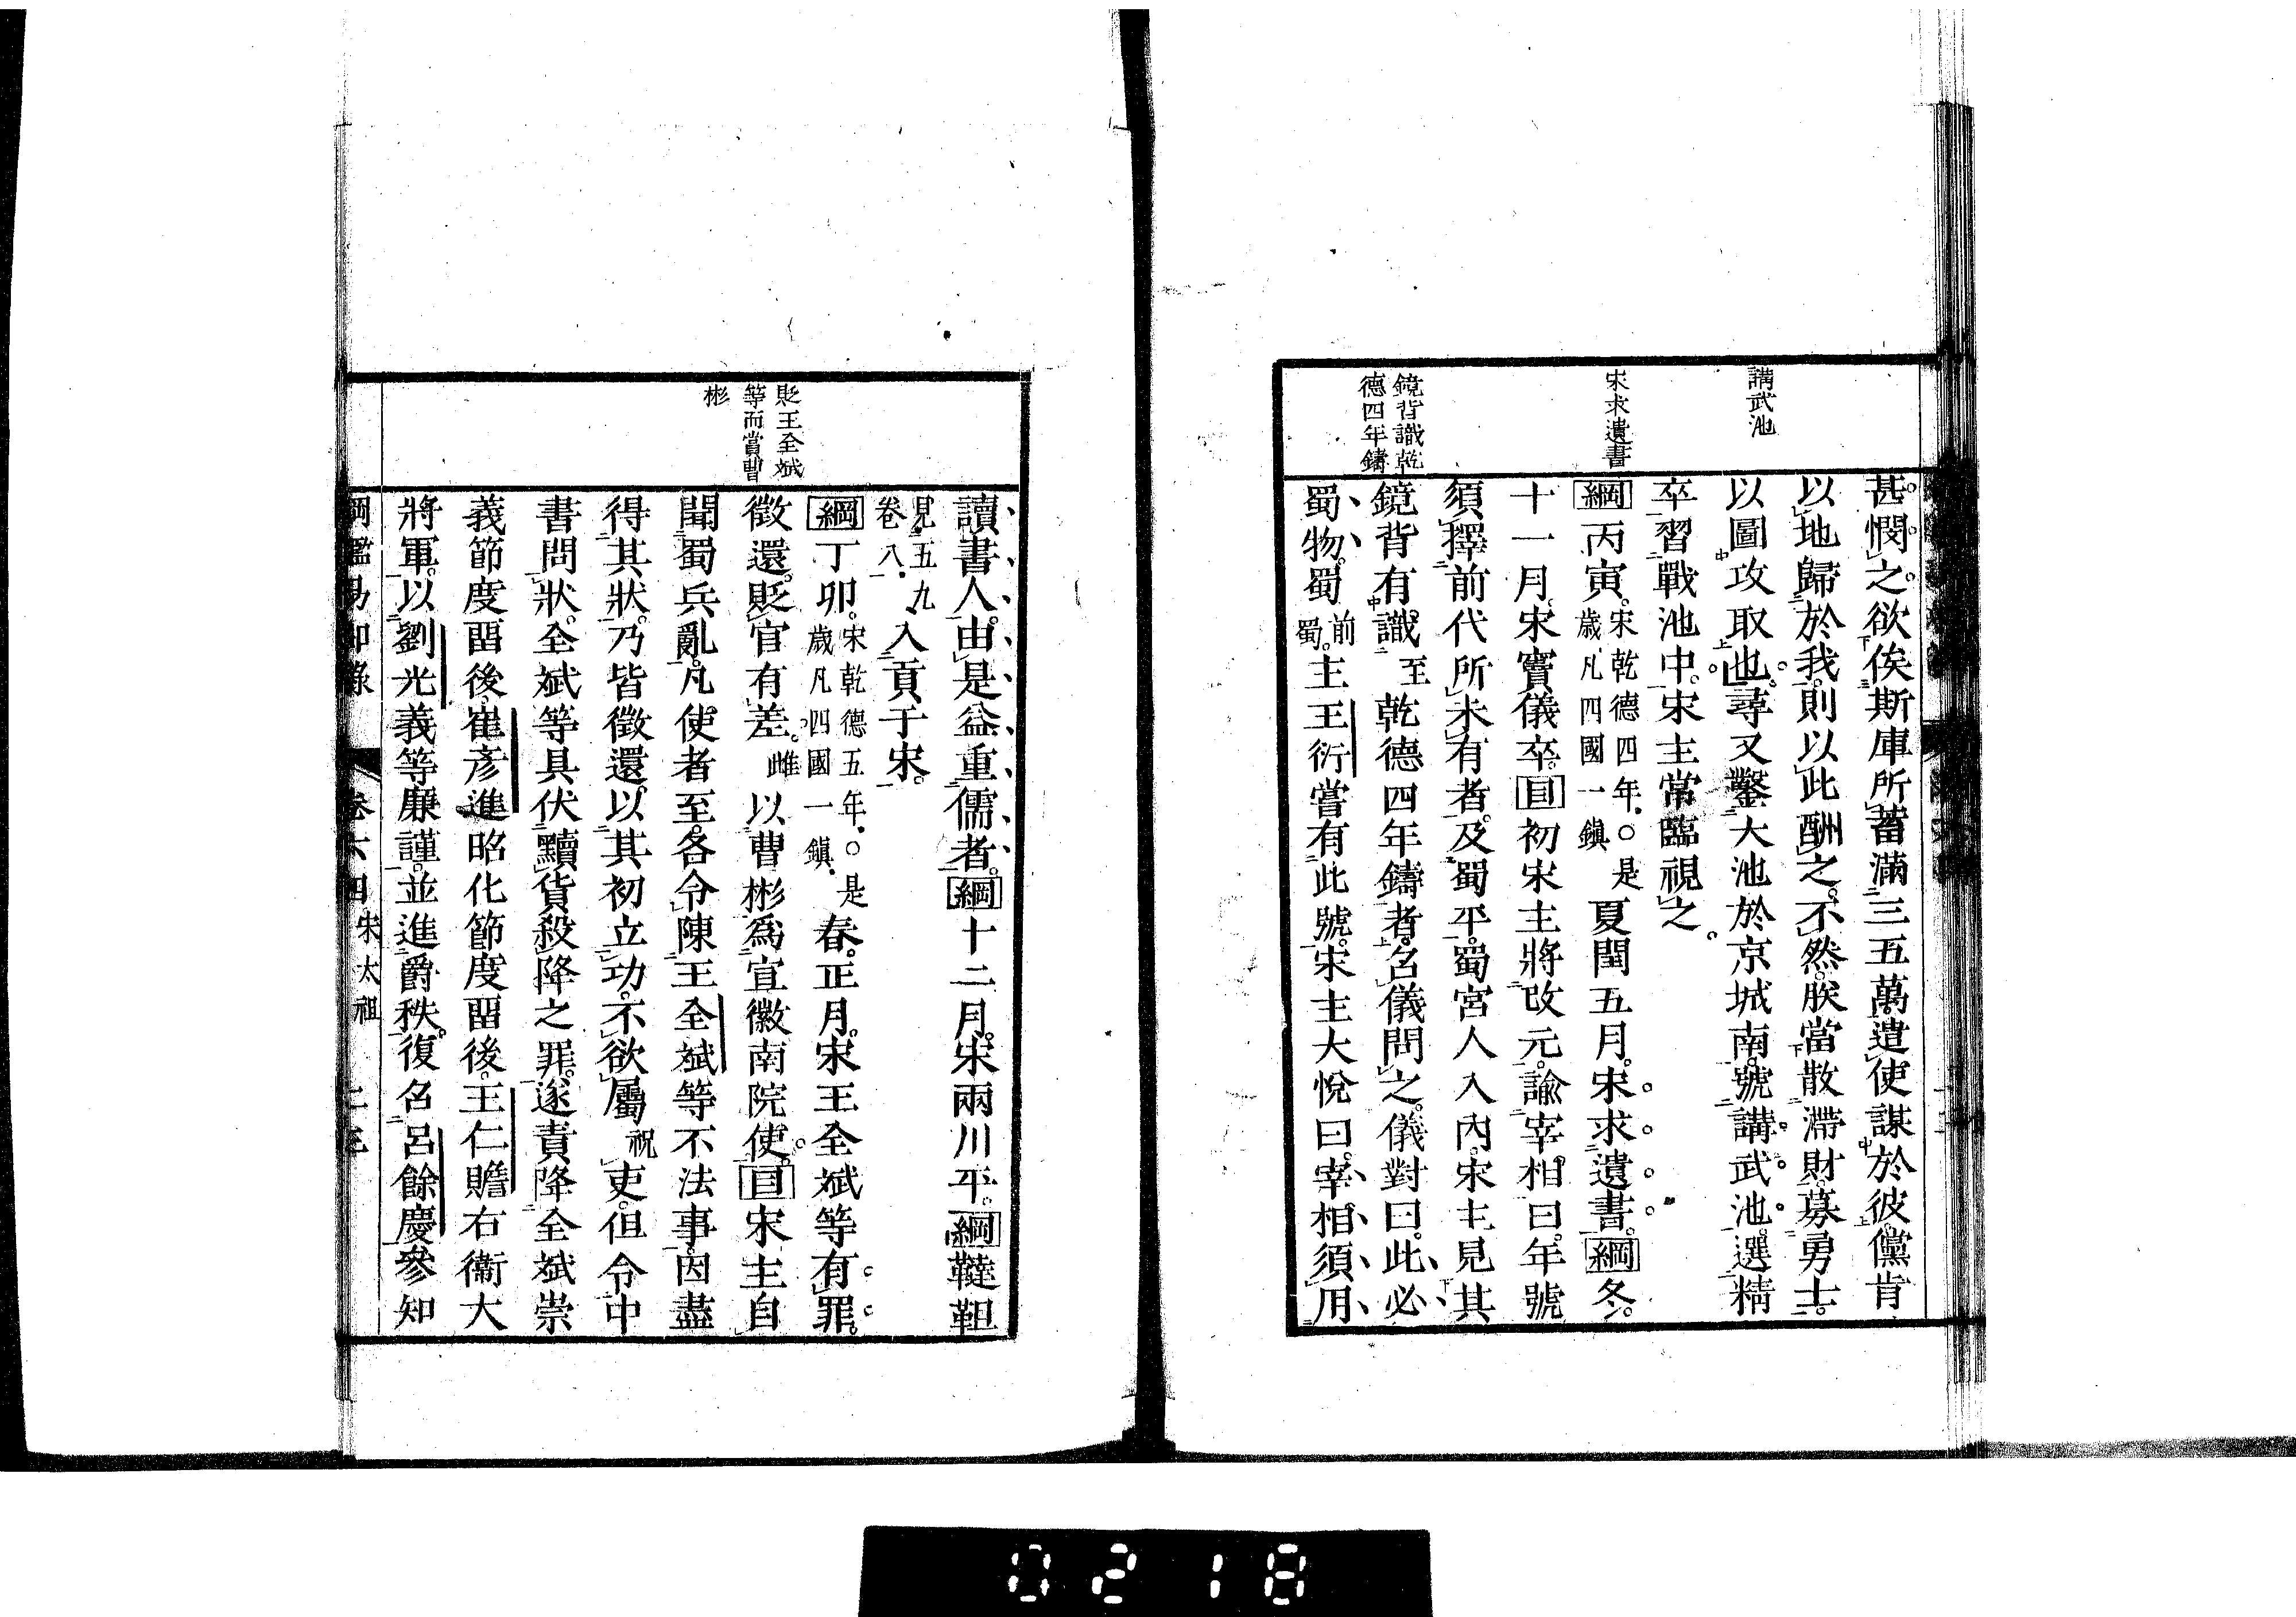 講武池
宋求遺書
鏡背識乾
德四年鑄
甚憫之欲俟斯庫所蓄滿三五萬遣使謀於彼儻肯
以地歸於我則以此酬之不然朕當散滯財募勇士
以圖攻取也尋又鑿大池於京城南號講武池選精
卒習戰池中宋主常臨視之
綱丙寅宋乾德四年○是歲凡四國一鎮夏閏五月宋求遺書綱冬
十一月宋竇儀卒目初宋主將改元諭宰相曰年號
須擇前代所未有者及蜀平蜀宮人入內宋主見其
鏡背有識至乾德四年鑄者召儀問之儀對曰此必
蜀物蜀前蜀主王衍嘗有此號宋主大悅曰宰相須用
貶王全斌
等而賞曹
彬
讀書人由是益重儒者綱十二月宋兩川平綱韃靼
見五九卷八入貢于宋
綱丁卯宋乾德五年○是歲凡四國一鎮春正月宋王全斌等有罪
徵還貶官有差雌以曹彬爲宣徽南院使目宋主自
聞蜀兵亂凡使者至各令陳王全斌等不法事因盡
得其狀乃皆徵還以其初立功不欲屬祝吏但令中
書問狀全斌等具伏黷貨殺降之罪遂責降全斌崇
義節度畱後崔彥進昭化節度畱後王仁贍右衞大
將軍以劉光義等廉謹並進爵秩復召呂餘慶參知
綱鑑易知錄 卷六四 宋太祖
0218